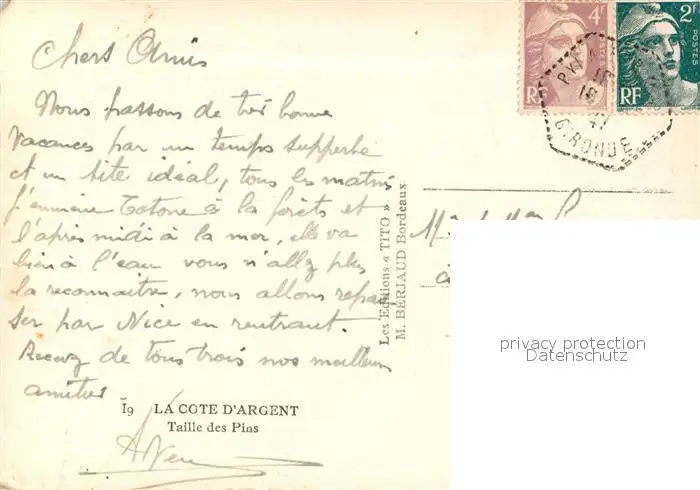 Chers Amis
Nous passons de très bonne
vacances par un temps supperbe
et un site idéal, tous les matin
j'emmène Totone à la forêts et
l'après midi à la mer, elle va
bien à l'eau vous n'allez plus
la reconnaitre, nous allons repas
ser par Nice en rentrant.
Recevez de tous trois nos meilleurs
amitiés
19 LA COTE D'ARGENT
Taille des Pins
Les Editions « TITO »
M. BERJAUD Bordeaux
4F
RF
2F
POSTES
RF
18
GIRONDE
privacy protection
Datenschutz